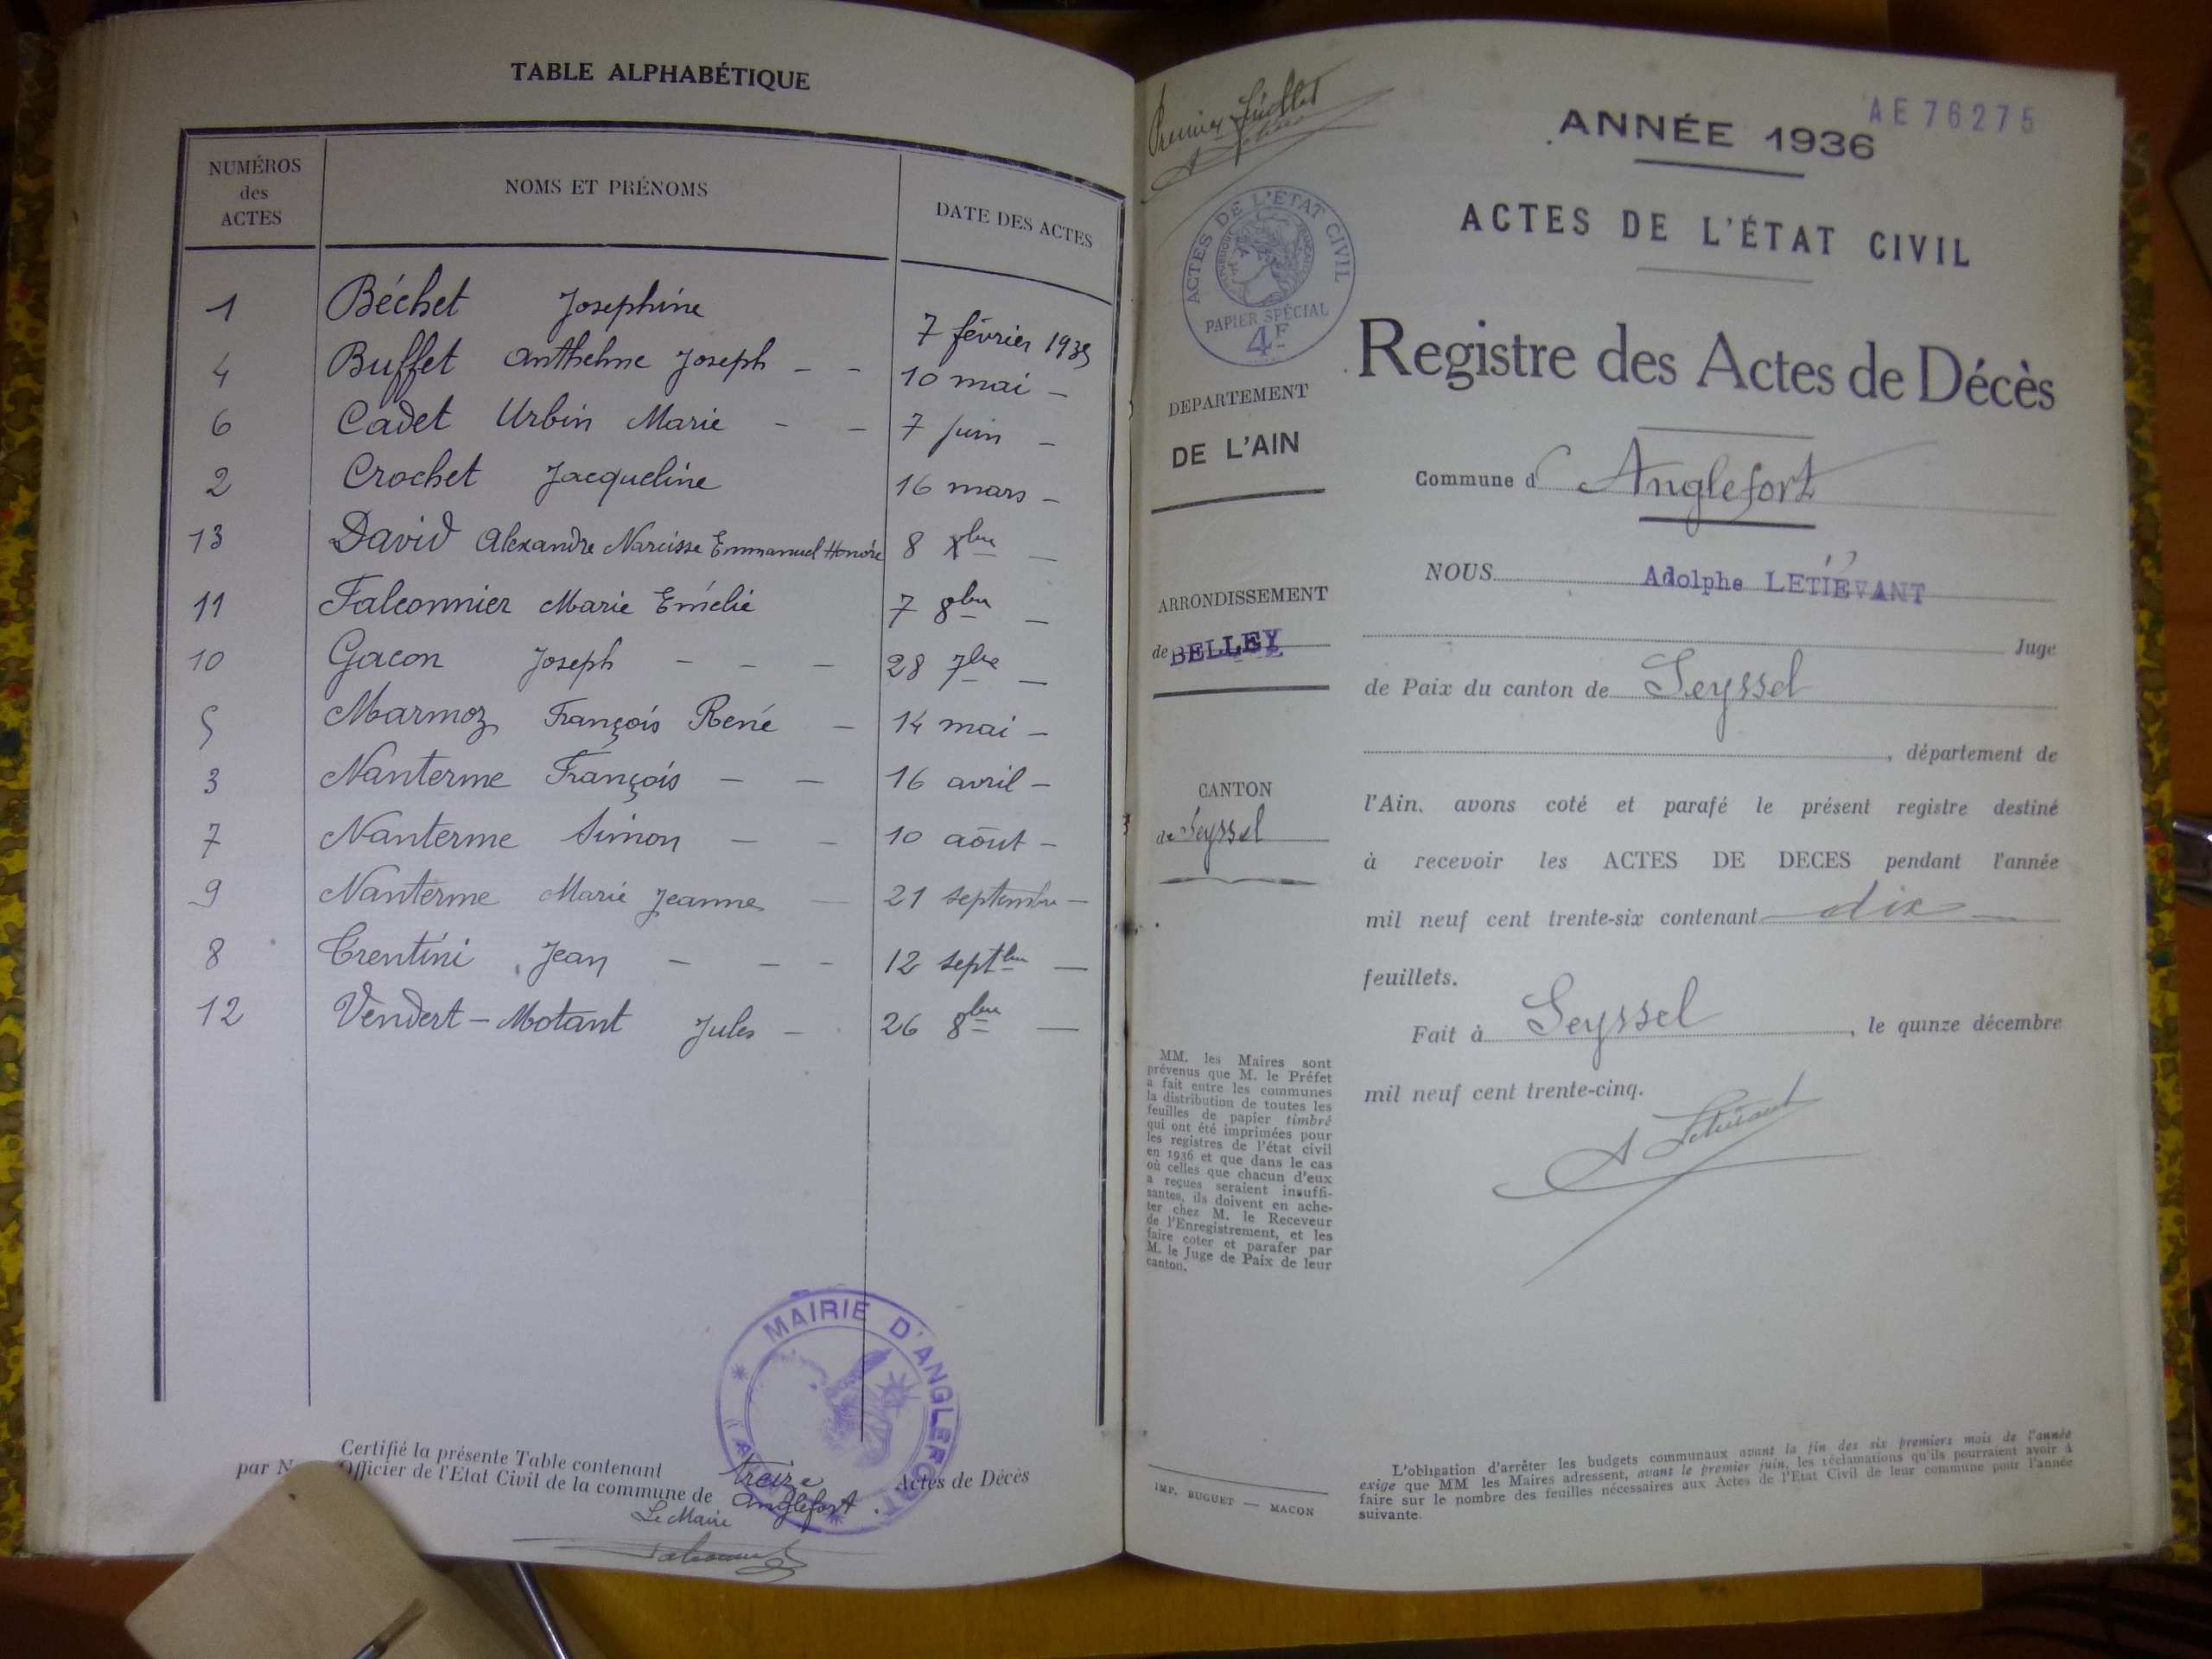 TABLE ALPHABÉTIQUE
NUMÉROS des ACTES
NOMS ET PRÉNOMS
DATE DES ACTES
1 Béchet Josephine 7 février 1935
4 Buffet Anthelme Joseph - - 10 mai -
6 Cadet Urbin Marie - - 7 juin -
2 Crochet Jacqueline 16 mars -
13 David Alexandre Narcisse Emmanuel Honoré 8 Xbre -
11 Falconnier Marie Emélie 7 8bre -
10 Gacon Joseph - - - 28 7bre -
5 Marmoz François René - 14 mai -
3 Nanterme François - - 16 avril -
7 Nanterme Simon - - 10 août -
9 Nanterme Marie Jeanne - 21 septembre -
8 Trentini Jean - - - 12 septbre -
12 Vendert-Motant Jules - 26 8bre -
MAIRIE D'ANGLEFORT
Certifié la présente Table contenant treize Actes de Décès
par N Officier de l'Etat Civil de la commune de Anglefort.
Le Maire
Premier feuillet
AE76275
ANNÉE 1936
ACTES DE L'ÉTAT CIVIL
ACTES DE L'ÉTAT CIVIL
PAPIER SPÉCIAL
4F
Registre des Actes de Décès
DEPARTEMENT
DE L'AIN
Commune d' Anglefort
ARRONDISSEMENT
de BELLEY
CANTON
de Seyssel
NOUS Adolphe LETIÉVANT
Juge
de Paix du canton de Seyssel
, département de
l'Ain. avons coté et parafé le présent registre destiné
à recevoir les ACTES DE DECES pendant l'année
mil neuf cent trente-six contenant dix
feuillets.
Fait à Seyssel, le quinze décembre
mil neuf cent trente-cinq.
A Letiévant
MM. les Maires sont
prévenus que M. le Préfet
a fait entre les communes
la distribution de toutes les
feuilles de papier timbré
qui ont été imprimées pour
les registres de l'état civil
en 1936 et que dans le cas
où celles que chacun d'eux
a reçues seraient insuffi-
santes, ils doivent en ache-
ter chez M. le Receveur
de l'Enregistrement, et les
faire coter et parafer par
M. le Juge de Paix de leur
canton.
IMP. BUGUET — MACON
L'obligation d'arrêter les budgets communaux avant la fin des six premiers mois de l'année
exige que MM les Maires adressent, avant le premier juin, les réclamations qu'ils pourraient avoir à
faire sur le nombre des feuilles nécessaires aux Actes de l'Etat Civil de leur commune pour l'année
suivante.